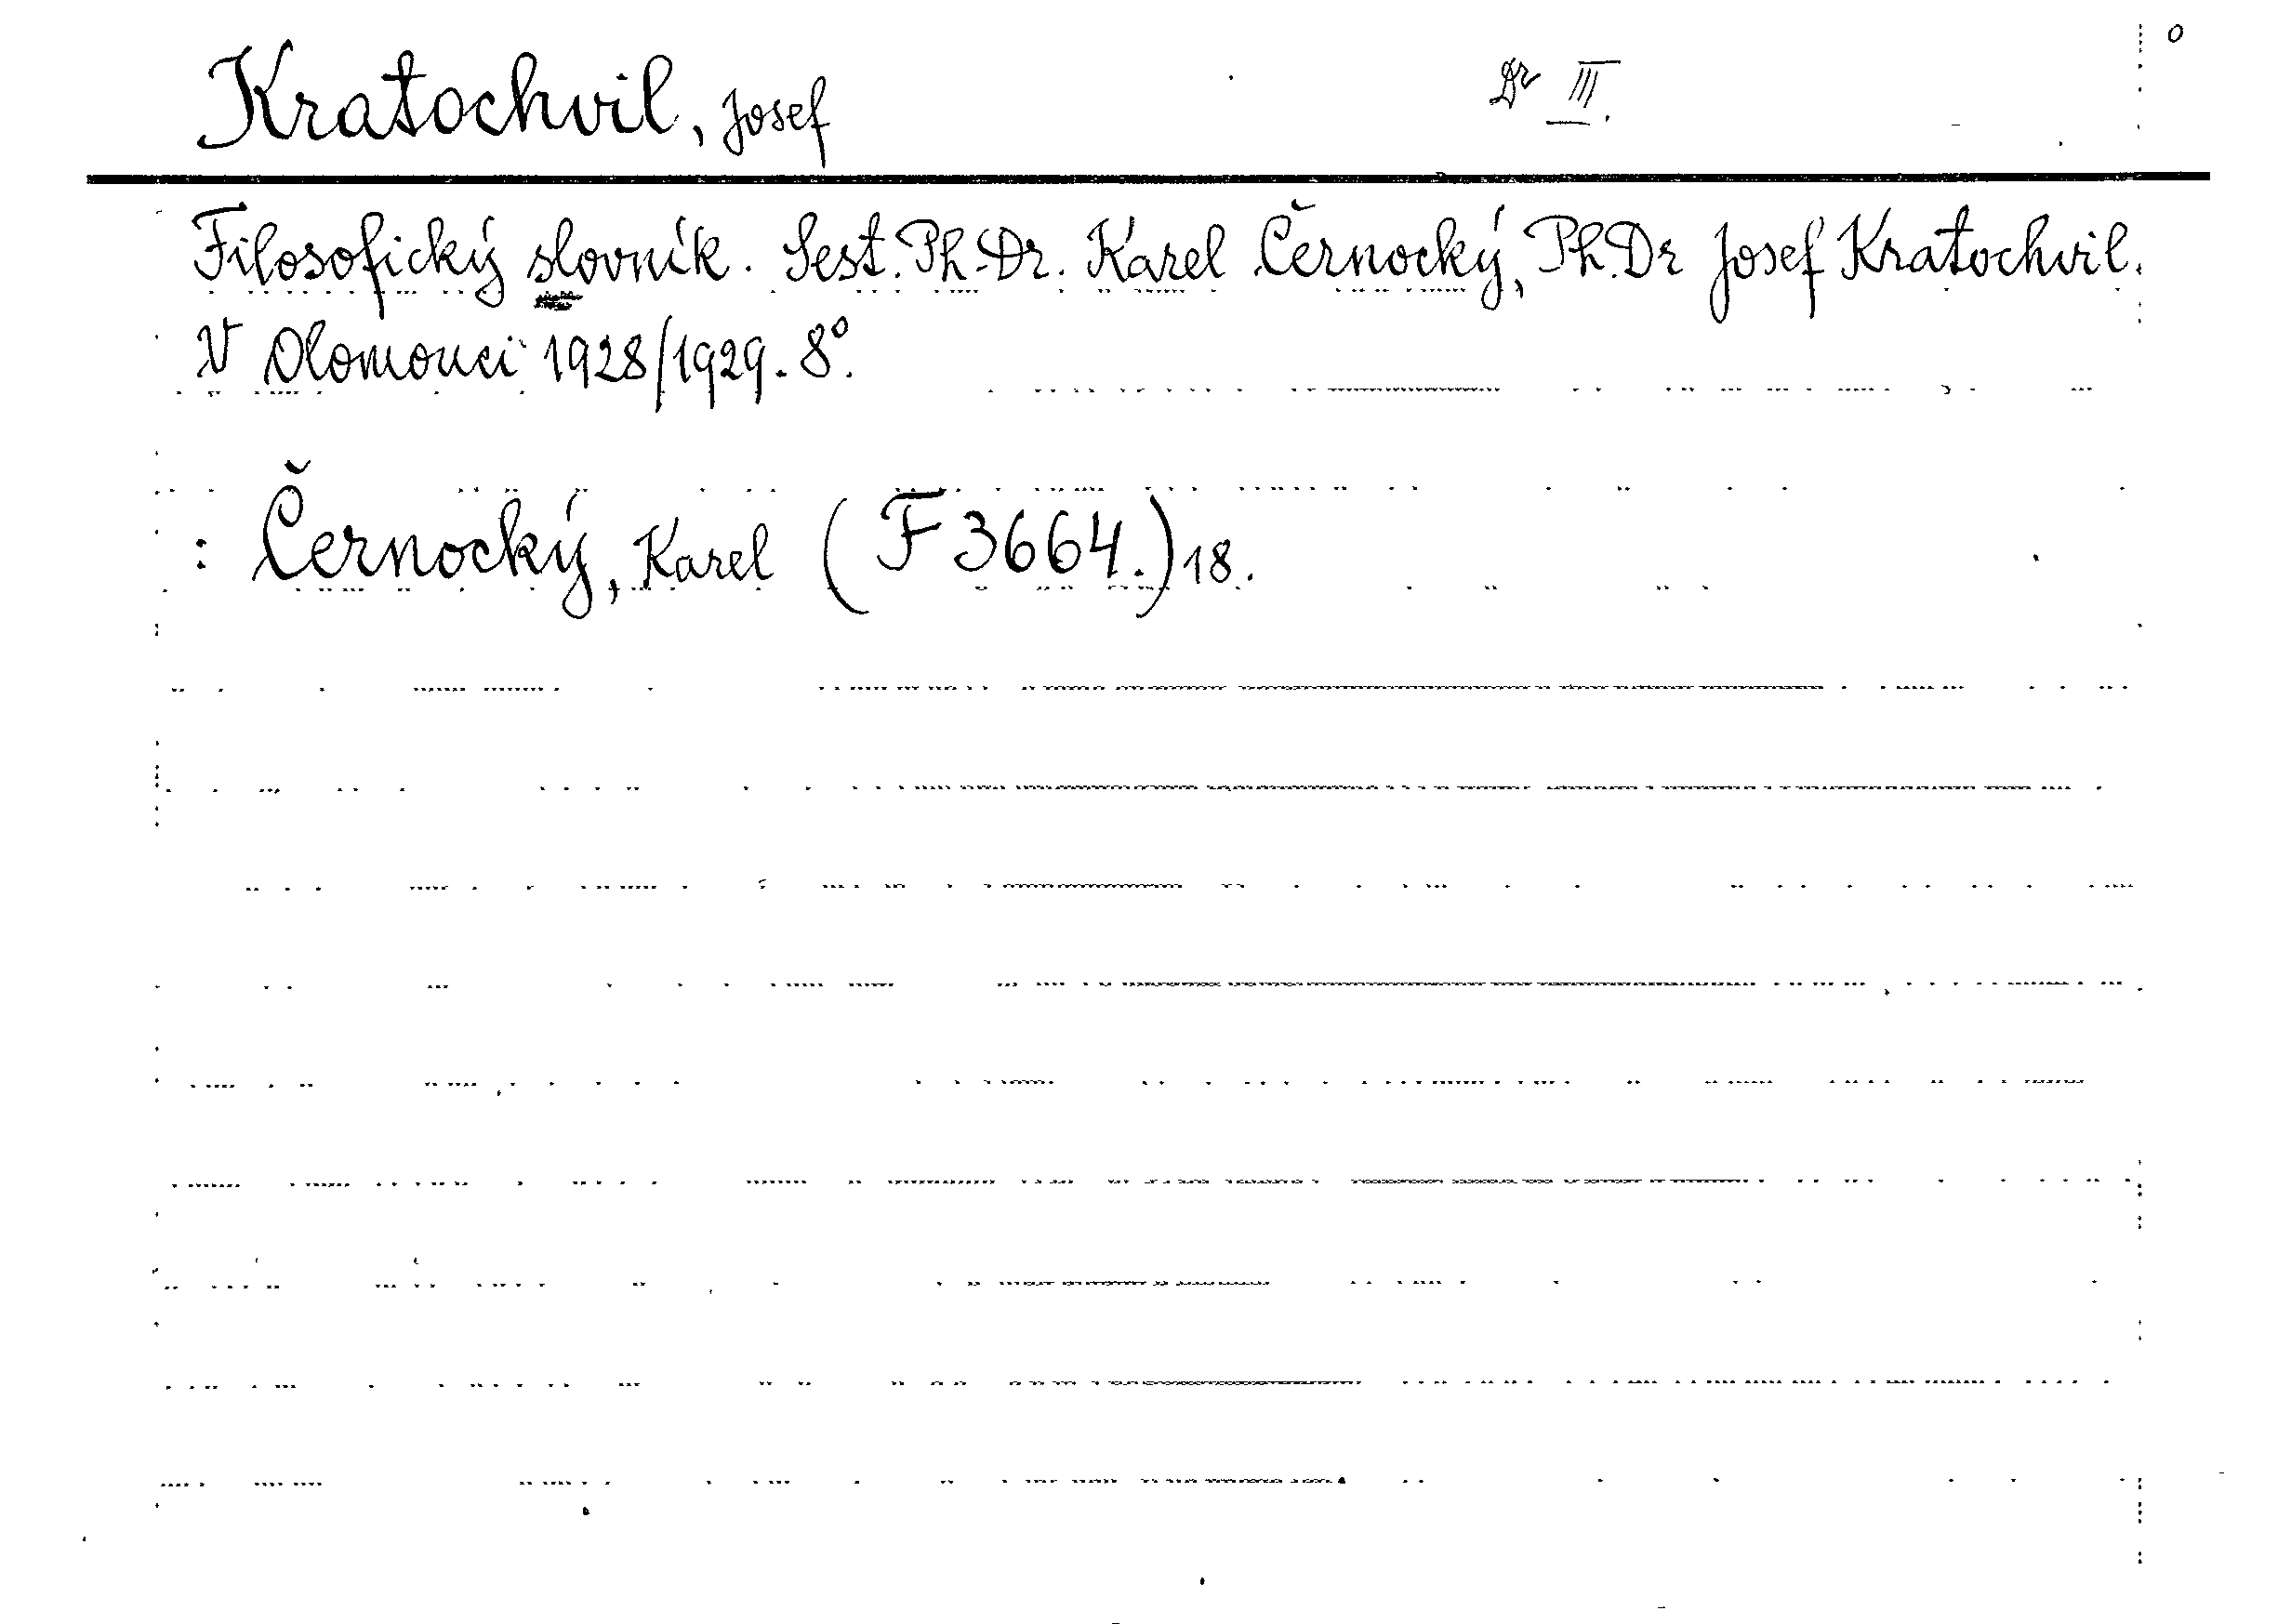 Kratochvil, Josef Dr III.
Filosofický slovník. Sest. Ph. Dr. Karel Černocký, Ph. Dr Josef Kratochvil.
V Olomouci 1928/1929. 8°.
: Černocký, Karel (F 3664.) 18.